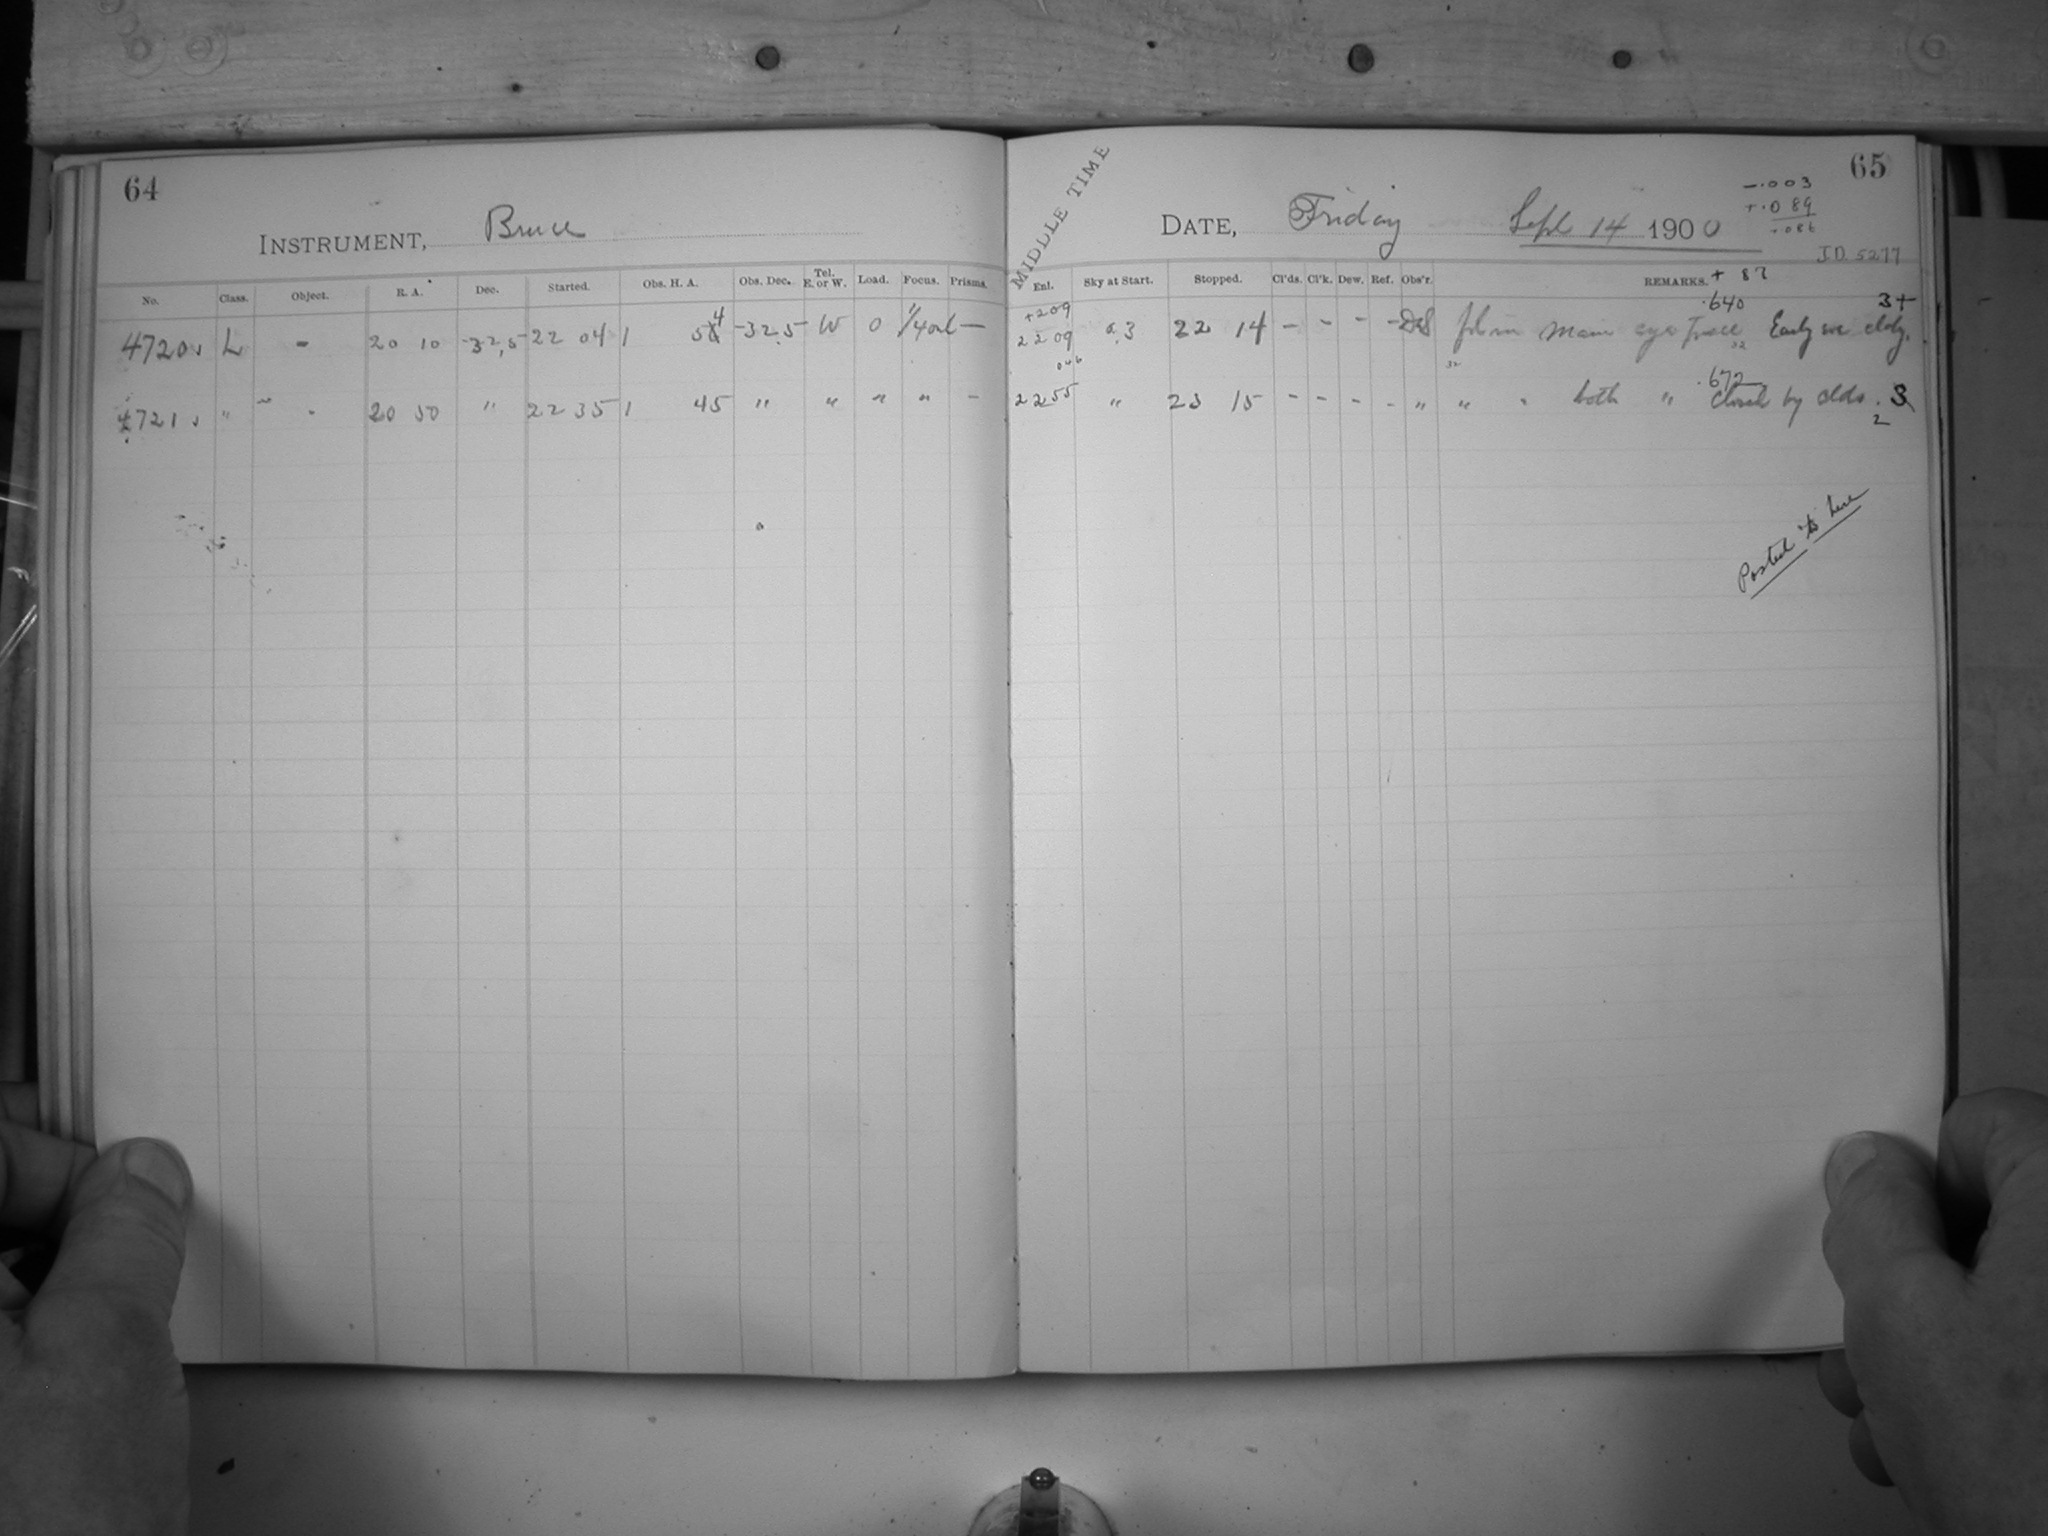 64
INSTRUMENT, Bruce
No. Class. Object. R. A. Dec. Started. Obs. H. A. Obs. Dec. Tel. E. or W. Load. Focus. Prisms.
4720 L - 20 10 -32,5 22 04 1 54 -32.5 W 0 -
4721 " - 20 50 " 22 35 1 45 " " " " -
MIDDLE TIME
65
-.003
+.089
+.086
DATE, Friday Sept 14 1900
J.D. 5277
Enl. Sky at Start. Stopped. Cl'ds. Cl'k. Dew. Ref. Obs'r. REMARKS. + 87
+209 .640 3+
2209 3 22 14 - - - - main eye Early we cldy.
046 32 32
.672
2255 " 23 15 - - - - " " " both " Closed by clds. 3
2
Posted to here